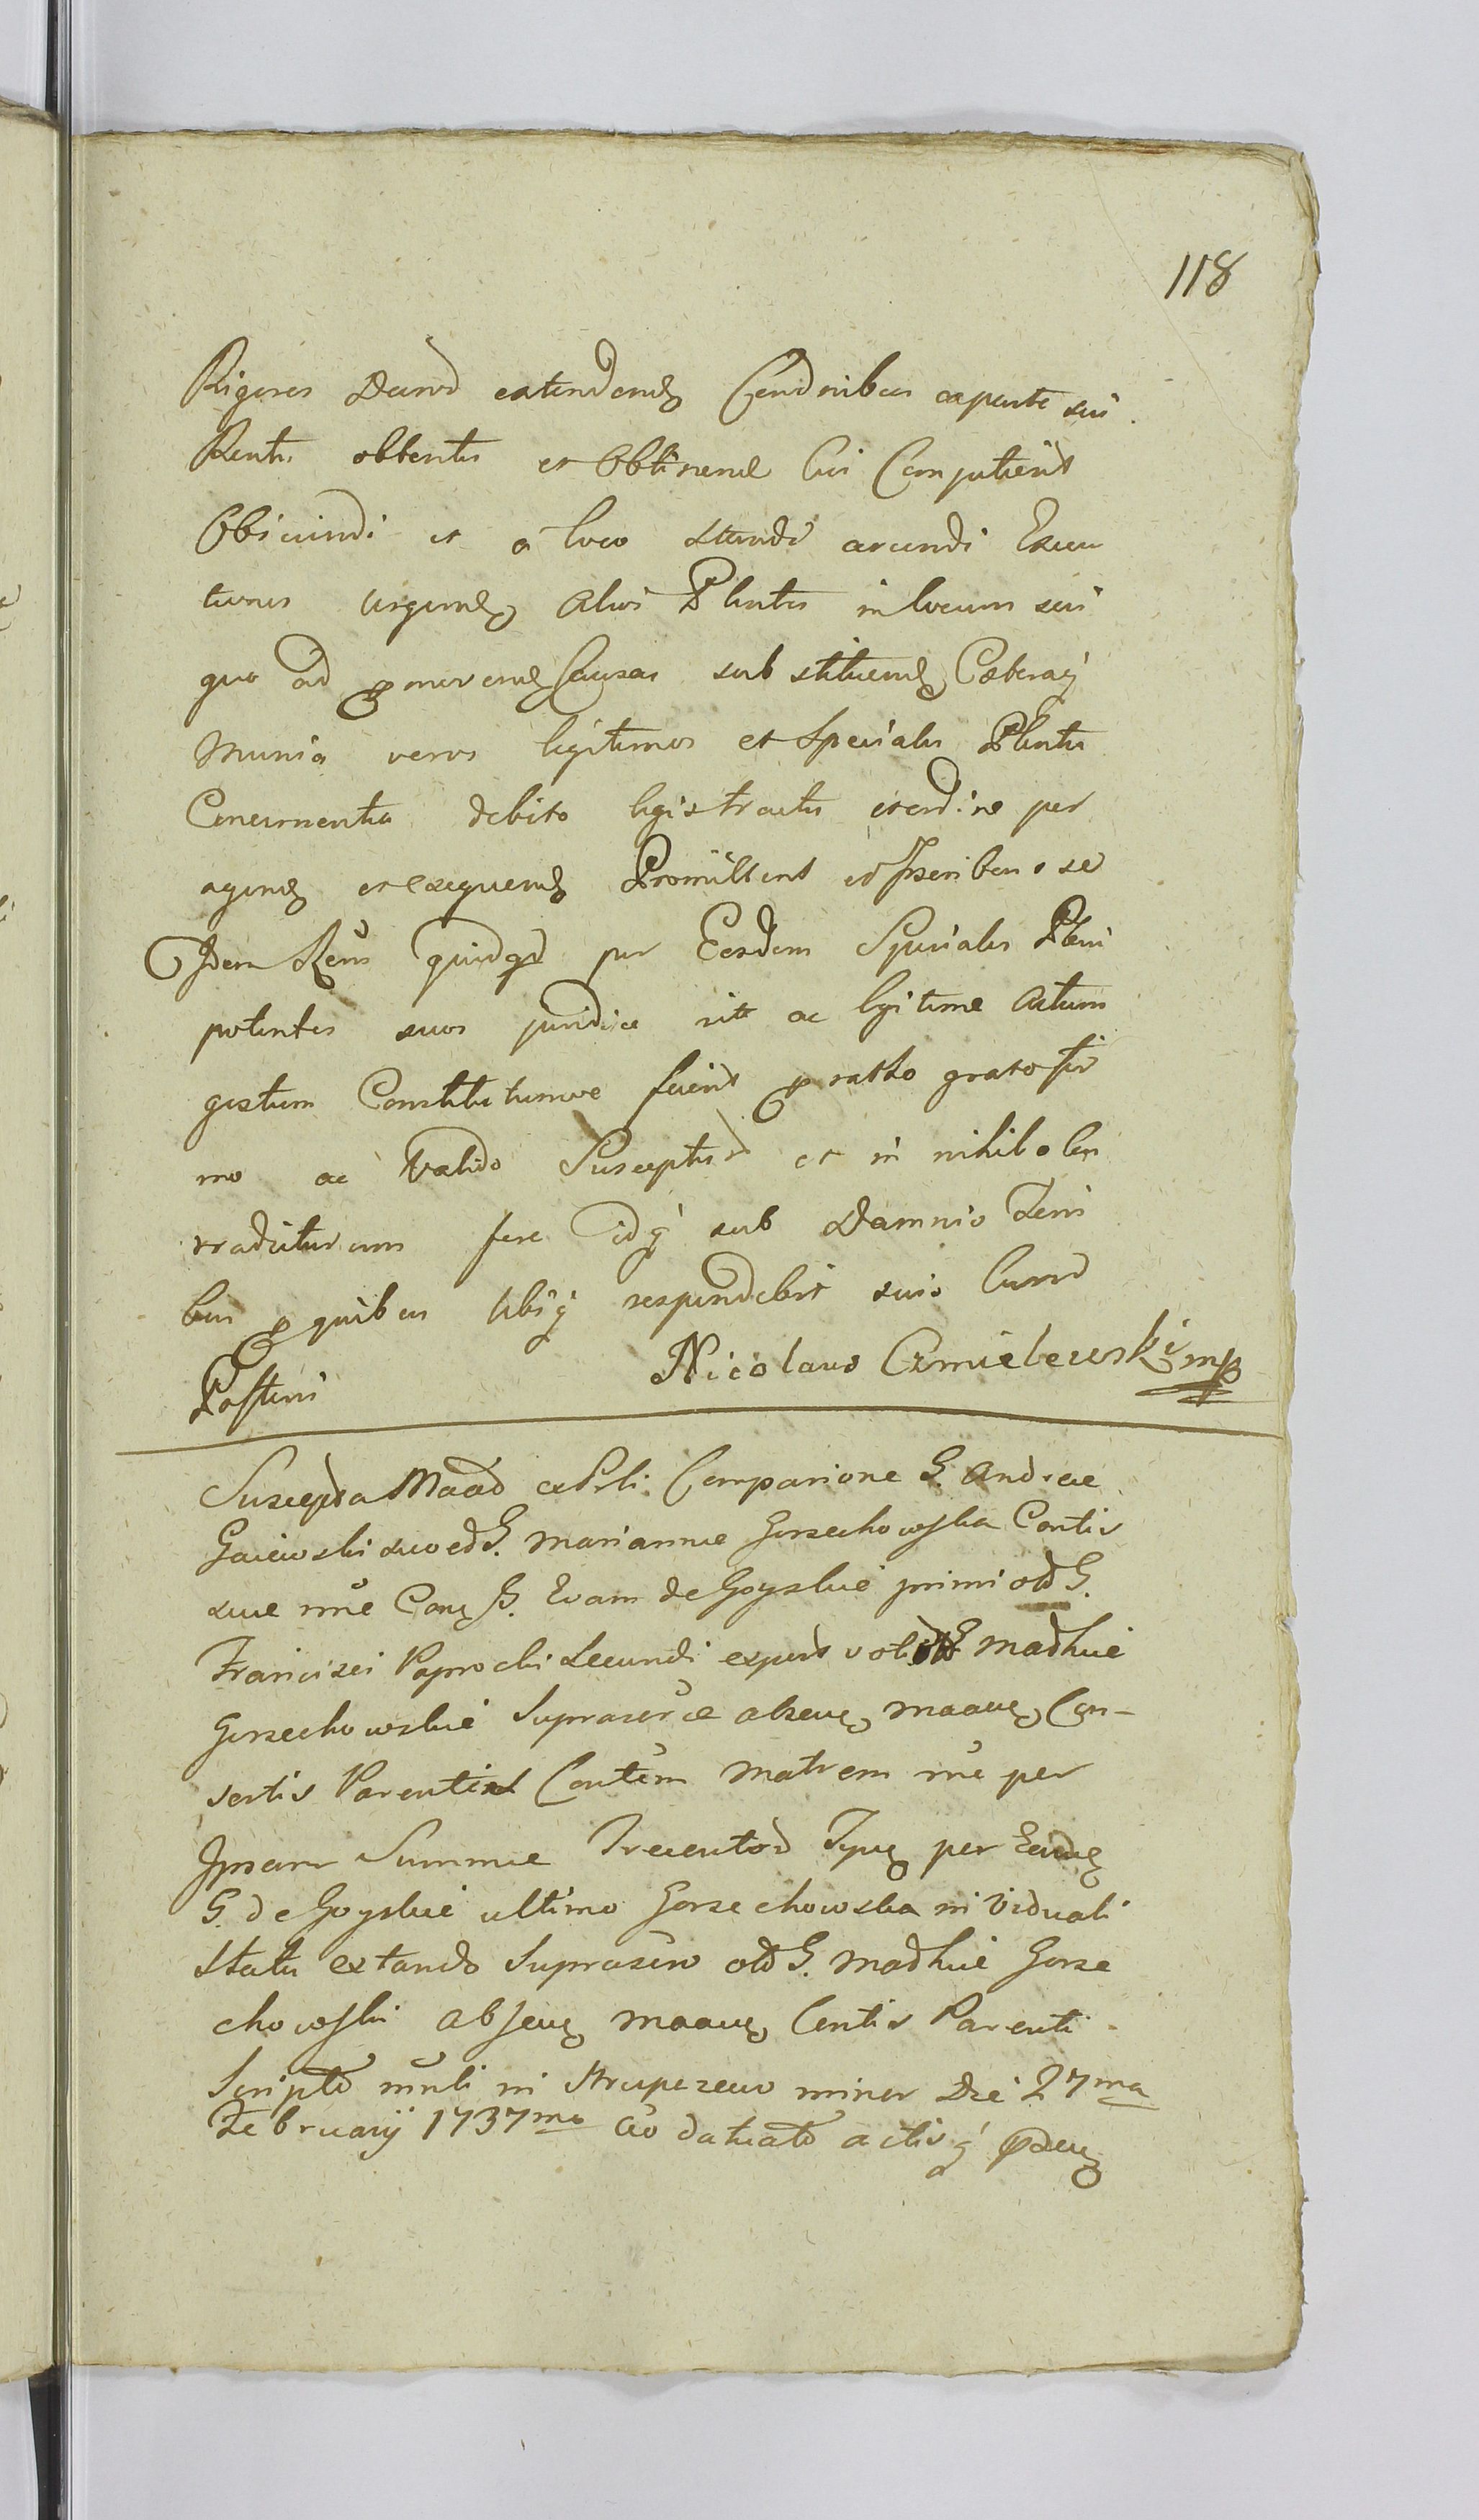 118
Rigores Decrod extendend Cendnibus exparte sui
Rentis obtentis et Obtinend Cui Computerit
Obiiciendi et a loco standi arcendi Execu
tiones urgend alios Plentes in locum sui
quo ad pmovend Causas substituend Caeteraq
Munia veros legitimos et Speciales Plentes
Concernentia debito legis tractu et ordine per
agend et exequend Promittent et Inscribens se
Idem Reus quidqd per Eosdem Speciales Pleni
potentes suos juridice rite ac legitime Actum
gestum Constitutumve fuerit p ratho grato fir
mo ac Valido Suscepturd et in nihilo con
tradicturum fere idq sub Damnis Terri
bus p quibus ubiq respondebit suis Cumd
Posteris
Nicolaus Czmielewski mp
Suscepta Maad Comparione G. Andreae
Gaiewski suo ed G. Mariannae Gorzechowska Contis
suae nne Conz G. Evam de Goyskie primi old G.
Francisci Paprocki Secundi expost voti old G Madhiae
Gorzechowskie Suprascrae absenz maaenz Con-
sertis Parentis Contem Matrem nne per
Ipsam Summae Trecentod Typz per Eandz
G. de Goyskie ultimo Gorzechowska in Viduali
Statu extando Suprascro old G. Madhiae Gorze
chowski absenz maaenz Centis Parenti
Scripto mnli in Strupczewo minor Die 27ma
Februarij 1737mo Ao datuato actisq pdenz